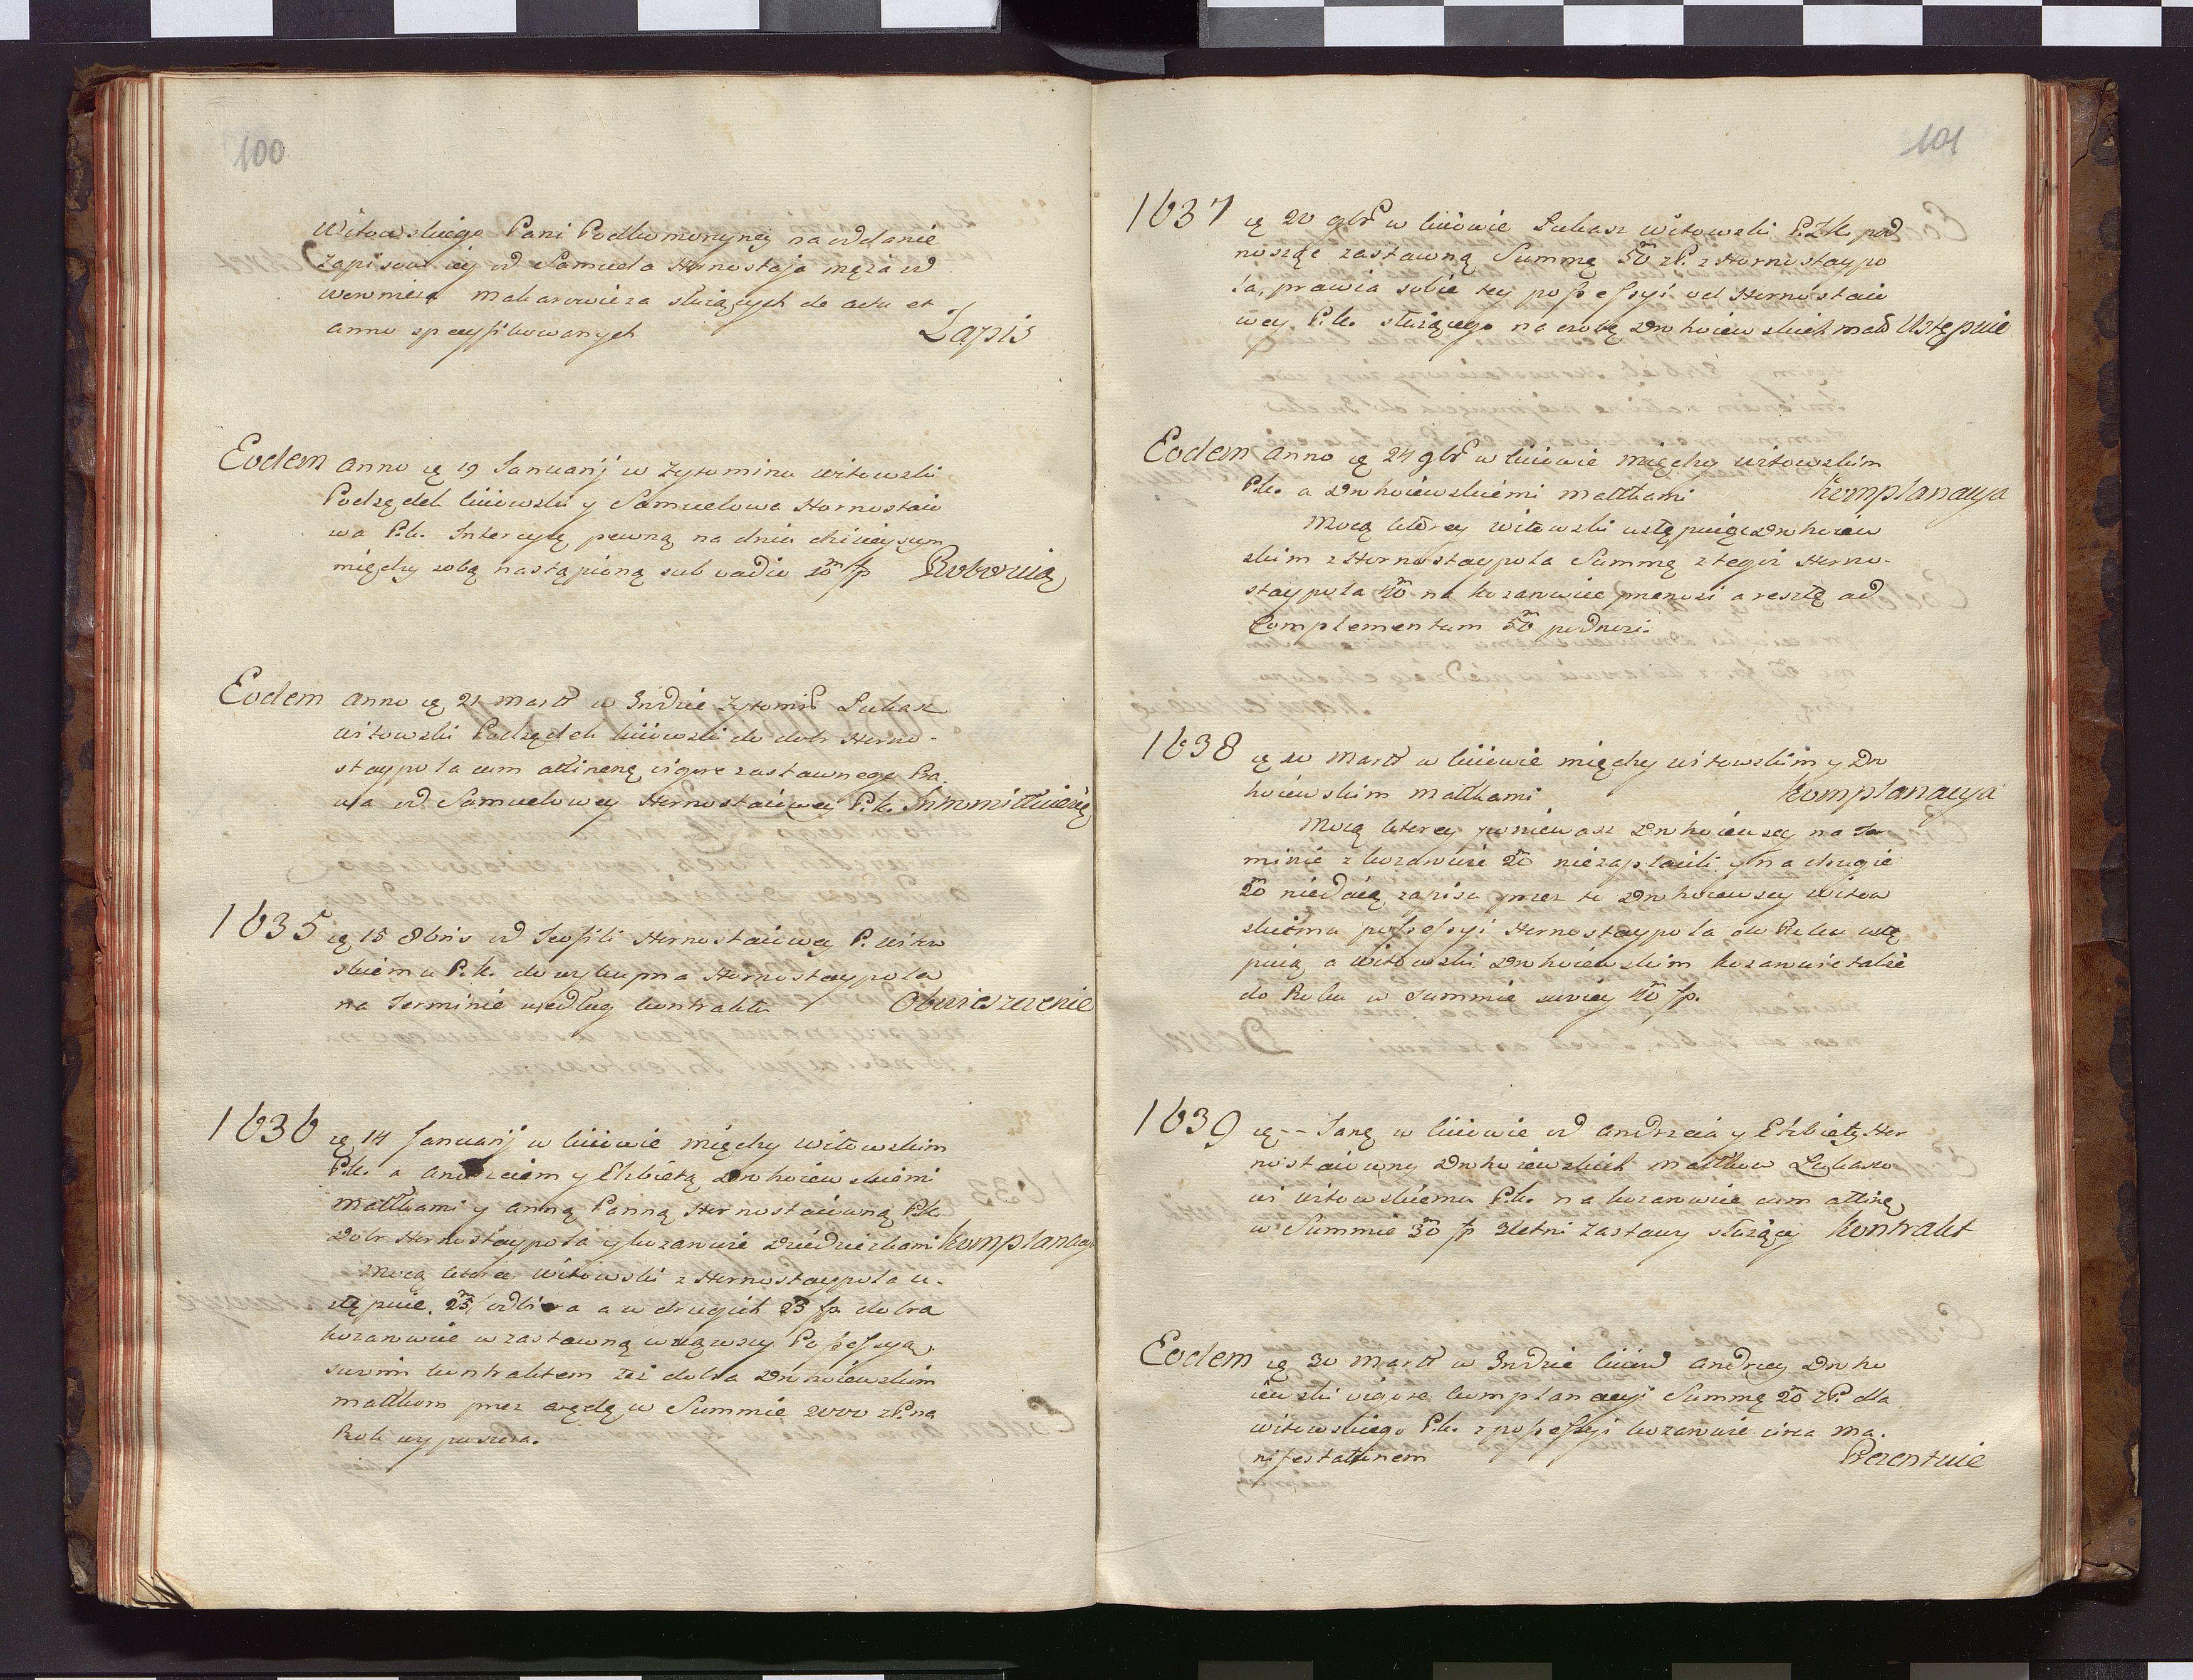 100
Witowskiego Pani Podkomorzyney na oddanie
zapisow iey od Samuela Hornostaja męża od
Wawrzeca Makarowicza służących de actu et
anno specyfikowanych Zapis
Eodem anno ię 19 Januarij w Zytomirzu Witowski
Podsędek kiiowski y Samuelowa Hornostaio
wa P.k. Intercyzę pewną na dniu dzisieyszym
między sobą nastąpioną sub vadio 20 m fp Roboruią
Eodem anno ię 21 Martii w Grodzie Zytomir Lukasz
Witowski Podsędek kiiowski do dobr Horno-
staypola cum attinen. vigore zastawnego Pra
wa od Samuelowey Hornostaiowey P.k. Intromittuie się
1635 ię 15 8bris od Teofili Hornostaiowey P. Witow
skiemu P.k. do wykupna Hornostaypola
na Terminie według kontraktu Obwieszczenie
1636 ię 14 Januarij w kiiowie między Witowskim
P.k. a Andrzeiem y Elzbietą Drohoiewskiemi
małłkami y Anną Panną Hornostaiowną P.k.
Dobr Hornostaypola y kozarowic Dziedziczkami Komplanacya
Mocą którey Witowski z Hornostaypola u-
stępuie, 25 m odbiera a w drugich 25 fp. dobra
kozarowice w zastawną wziąwszy Possessyą,
swoim kontraktem też dobra Drohoiewskim
małłkom przez arędę w Summie 2000 zP. na
Rok wypuszcza.
101
1637 ię 20 9br w kiiowie Lukasz Witowski P.Z.k. pod
nosząc zastawną Summę 50 m zP. z Hornostaypo
la, prawia sobie tey possessyi od Hornostaio
wey P.k. służącego na osobę Drohoiewskich małł Ustępuie
Eodem anno ię 24 9br w kiiowie między Witowskim
P.k. a Drohoiewskiemi małłkami Komplanacya
Mocą którey Witowski ustępuiąc Drohoiew
skim z Hornostaypola Summę z tegoż Horno-
staypola 40 m na kozarowice przenosi a resztę ad
Complementum 50 m podnosi.
1638 ię 10 Martii w kiiowie między Witowskim y Dro
hoiewskim małłkami Komplanacya
Mocą którey ponieważ Drohoiewscy na Ter
minie z kozarowic 20 m niezapłacili y na drugie
20 m niedaią zapisu przez to Drohoiewscy Witow
skiemu possessyi Hornostaypola do Roku ustę
puią a Witowski Drohoiewskim kozarowic także
do Roku w summie swoiey 40 m fp.
1639 ię -- Janę w kiiowie od Andrzeia y Elzbiety Hor
nostaiowny Drohoiewskich małłkow Łukaszo
wi Witowskiemu P.k. na kozarowice cum attinę
w Summie 30 m fp 3letni zastawy służący Kontrakt
Eodem ię 30 Martii w Grodzie kiiow Andrzey Droho
iewski vigore komplanacyi Summę 20 m zP. dla
Witowskiego P.k. z possessyi kozarowic circa Ma-
nifestationem Prezentuie